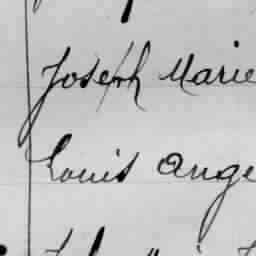 Joseph Marie
Louis Ange